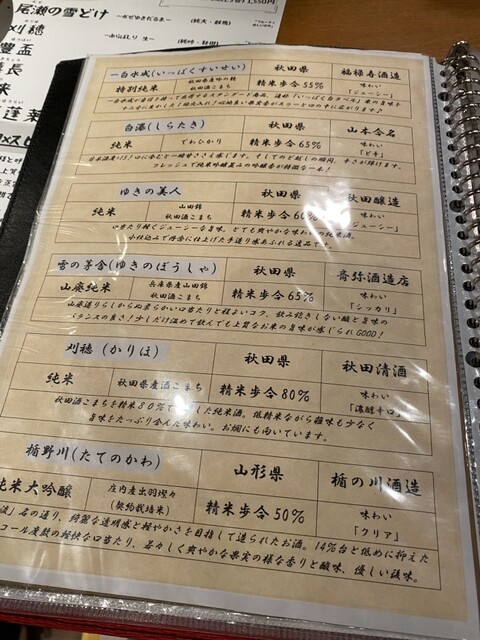 尾瀬の雪どけ
刈穂
豊盃
一白水成(いっぱくすいせい)
秋田県
福禄寿酒造
特別純米
秋田酒こまち
精米歩合55%
味わい
「ジューシー」
白瀑(しらたき)
秋田県
山本合名
純米
でわひかり
精米歩合65%
味わい
「ドキ」
フレッシュで純米吟醸並みの吟醸香が特徴な一本!
ゆきの美人
秋田県
秋田醸造
純米
山田錦
秋田酒こまち
精米歩合60%
味わい
「ジューシー」
口当たり軽くジューシーな旨味、とても爽やかな味わいの純米酒。
小仕込みで丹念に仕上げた手造り感あふれる逸品です。
雪の茅舎(ゆきのぼうしゃ)
秋田県
齋弥酒造店
山廃純米
兵庫県産山田錦
秋田酒こまち
精米歩合65%
味わい
「シッカリ」
山廃造りらしからぬ柔らかい口当たりと程よいコク。飲み飽きしない酸と旨味の
バランスの良さ!少しだけ温めて飲んでも上質なお米の旨味が感じられGOOD!
刈穂(かりほ)
秋田県
秋田清酒
純米
秋田県産酒こまち
精米歩合80%
味わい
「濃醇辛口」
秋田酒こまちを精米80%で
した純米酒。低精米ながら雑味も少なく
旨味をたっぷり含んだ味わい。お燗にも向いています。
楯野川(たてのかわ)
山形県
楯の川酒造
純米大吟醸
庄内産出羽燦々
(契約栽培米)
精米歩合50%
味わい
「クリア」
名の通り、綺麗な透明感と軽やかさを目指して造られたお酒。14%台と低めに抑えた
コール度数の軽快な口当たり、若々しく爽やかな果実の様な香りと酸味、優しい後味。